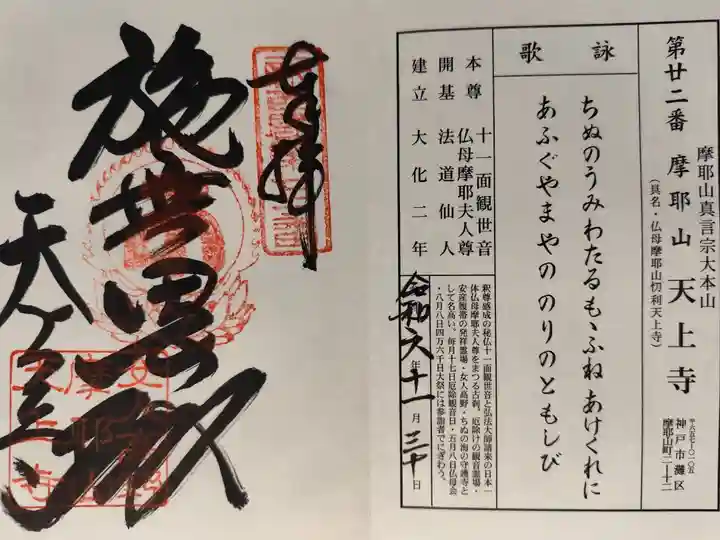 第廿二番 摩耶山 天上寺
摩耶山真言宗大本山
(具名・仏母摩耶山忉利天上寺)
〒六五七ー〇一〇五
神戸市灘区
摩耶山町二ー十二
詠歌
ちぬのうみわたるもゝふねあけくれに
あふぐやまやののりのともしび
本尊 十一面観世音
仏母摩耶夫人尊
開基 法道仙人
建立 大化二年
釈尊感成の秘仏十一面観世音と弘法大師請来の日本一
体仏母摩耶夫人尊をまつる古刹。厄除けの観音霊場・
安産腹帯の発祥霊場・女人高野・ちぬの海の守護寺と
して名高い。毎月十七日厄除観音日・五月八日仏母会
・八月八日四万六千日大祭には参詣者でにぎわう。
令和六年十一月三十日
奉拝
施無畏殿
天上寺